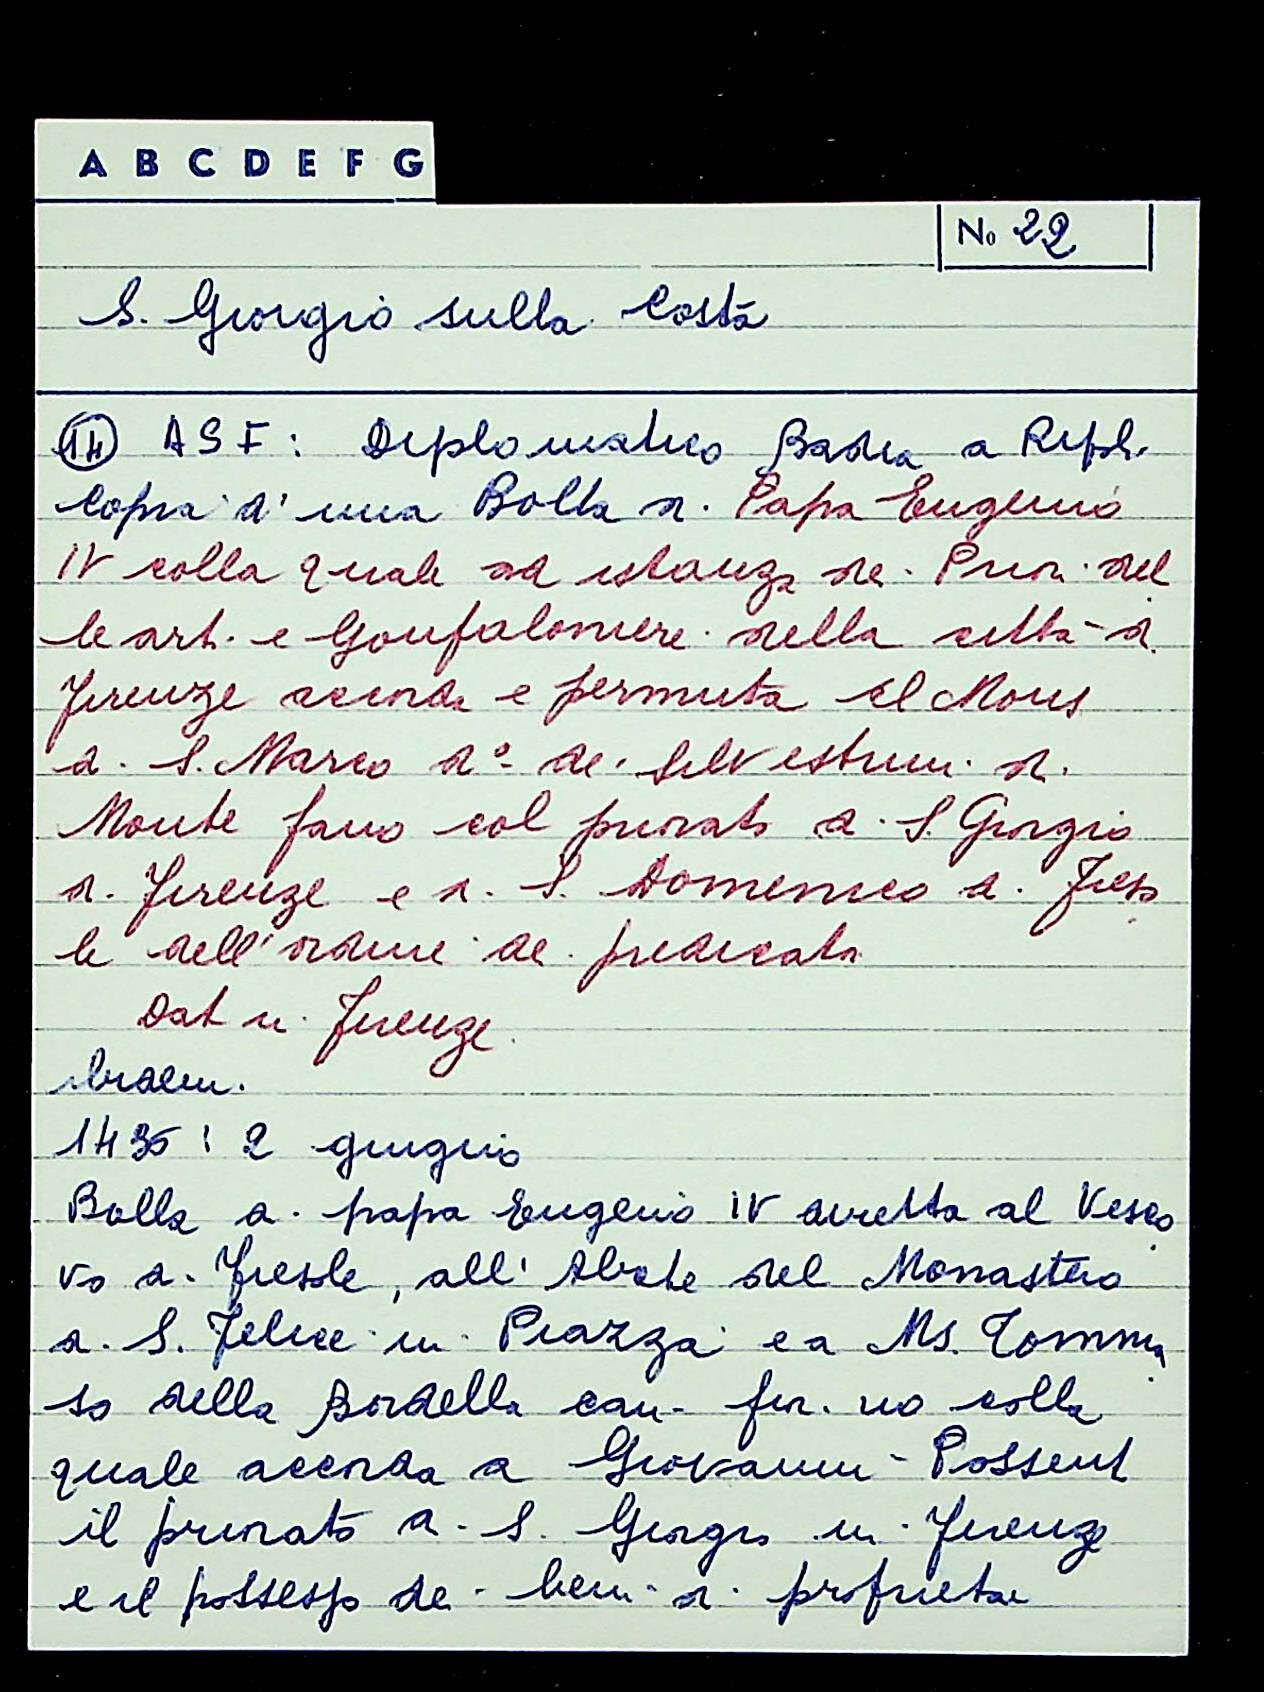 A B C D E F G
No 22
S. Giorgio sulla Costa
14 ASF: Diplomatico Badia a Ripoli
Copia d'una Bolla di Papa Eugenio
IV colla quale ad istanza dei Priori del
le arti e Gonfaloniere della città di
Firenze accorda e permuta il Mons
di S. Marco d° dei Silvestrini di
Monte fano col priorato di S. Giorgio
di Firenze e di S. Domenico di Fieso
le dell'ordine dei predicatori
Dat in Firenze.
ibidem.
1435: 2 giugno
Bolla di papa Eugenio IV diretta al Vesco
vo di Fiesole, all'Abate del Monastero
di S. Felice in Piazza e a Ms. Tomma
so della Bordella can. fior.no colla
quale accorda a Giovanni Possent
il priorato di S. Giorgio in Firenze
e il possesso dei beni di proprietà